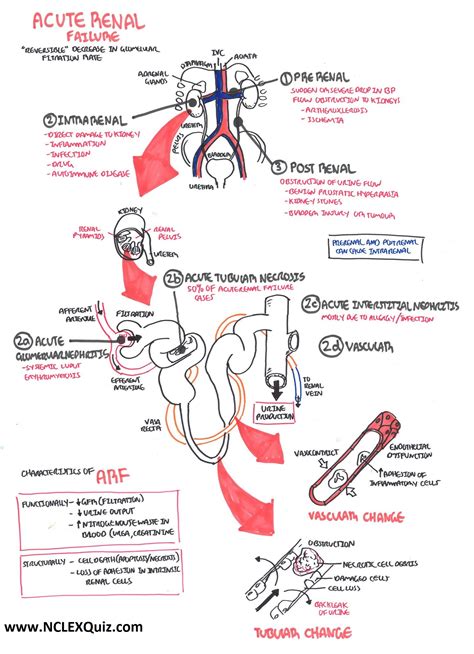 ACUTE RENAL
FAILURE
"REVERSIBLE" DECREASE IN GLOMELLAR
FITRATION RATE
IVC
AORTA
DIAPHRAGM
ADRENAL
GLANDS
URETER
PELVIS
BLADDER
URETHRA
① PRERENAL
SUDDEN OR SEVERE DROP IN BP
FLOW OBSTRUCTION TO KIDNEYS
- ARTHEROSCLEROSIS
- ISCHEMIA
② INTRARENAL
- DIRECT DAMAGE TO KIDNEY
- INFLAMMATION
- INFECTION
- DRUG
- AUTOIMMUNE DISEASE
③ POST RENAL
OBSTRUCTION OF URINE FLOW
- BENIGN PROSTATIC HYPERPLASIA
- KIDNEY STONES
- BLADDER INJURY OR TUMOUR
PRERENAL AND POSTRENAL
CAN CAUSE INTRARENAL
KIDNEY
RENAL
PYRAMIDS
RENAL
PELVIS
URETER
2b ACUTE TUBULAR NECROSIS
50% OF ACUTE RENAL FAILURE
CASES
2c ACUTE INTERSTITIAL NEPHRITIS
MOSTLY DUE TO ALLERGY/INFECTION
2d VASCULAR
AFFERENT
ARTERIOLE
FILTRATION
2a ACUTE
GLOMERULARNEPHRITIS
- SYSTEMIC LUPUS
ERYTHEMATOSIS
EFFERENT
ARTERIOLE
VASA
RECTA
URINE
PRODUCTION
TO
RENAL
VEIN
VASOCONSTRICT
ENDOTHELIAL
DYSFUNCTION
↑ ADHESION OF
INFLAMMATORY CELLS
VASCULAR CHANGE
CHARACTERISTICS OF ARF
FUNCTIONALLY - ↓ GFR (FILTRATION)
- ↓ URINE OUTPUT
- ↑ NITROGENOUS WASTE IN
BLOOD (UREA, CREATININE
STRUCTURALLY - CELL DEATH (APOPTOSIS/NECROSIS)
- LOSS OF ADHESION IN INTRINSIC
RENAL CELLS
OBSTRUCTION
NECROTIC CELL DEBRIS
DAMAGED CELLS
CELL LOSS
BACKLEAK OF
URINE
TUBULAR CHANGE
www.NCLEXQuiz.com